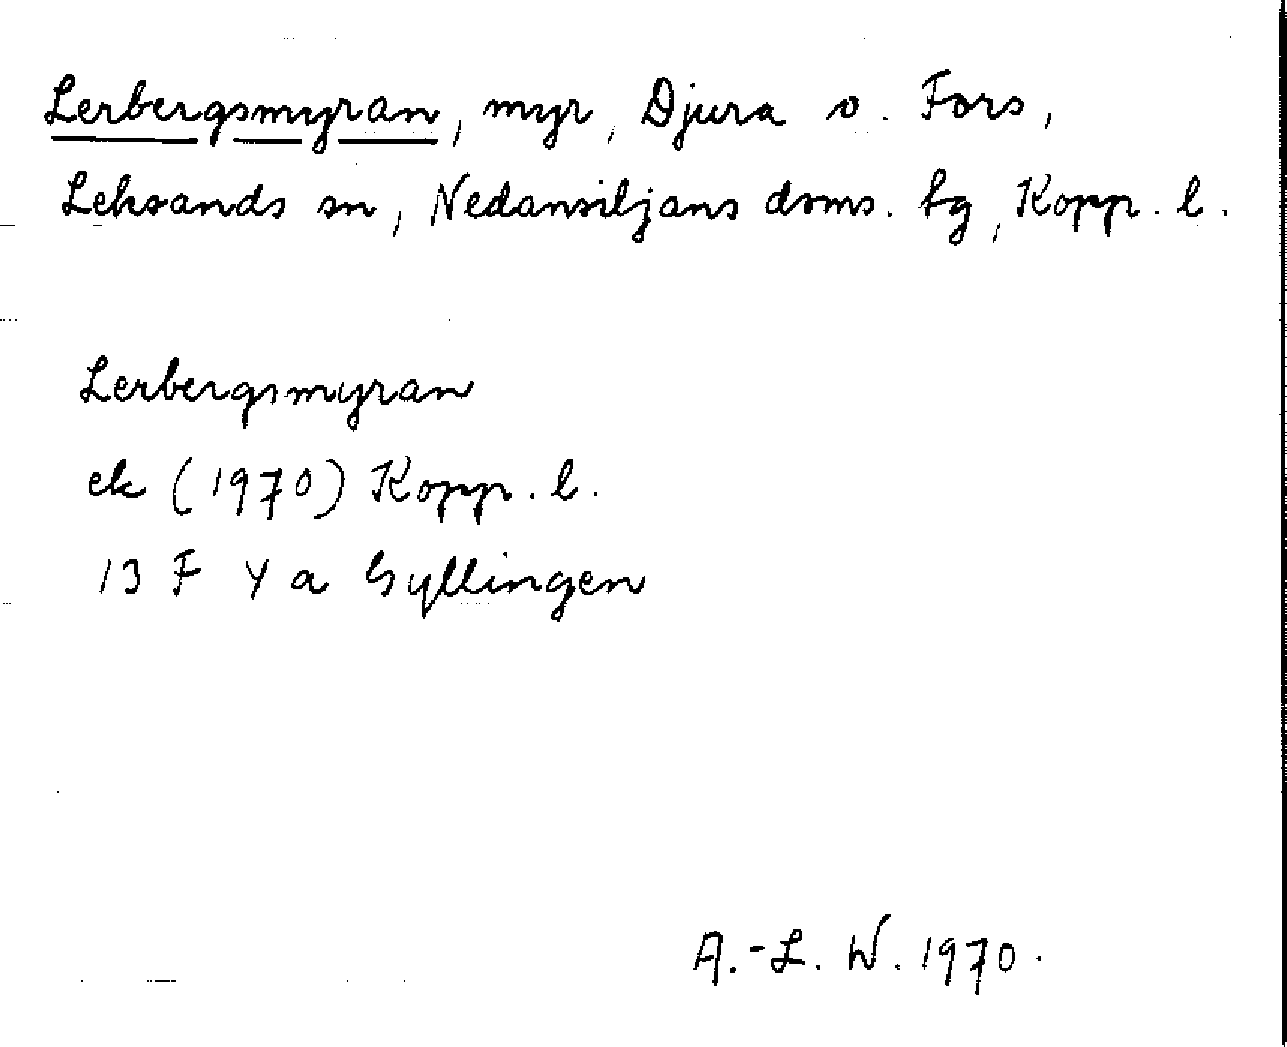 Lerbergsmyran, myr, Djura o. Fors,
Leksands sn, Nedansiljans doms. tg, Kopp. l.
Lerbergsmyran
ek (1970) Kopp. l.
13 F 4 a Gyllingen
A.-L. W. 1970.